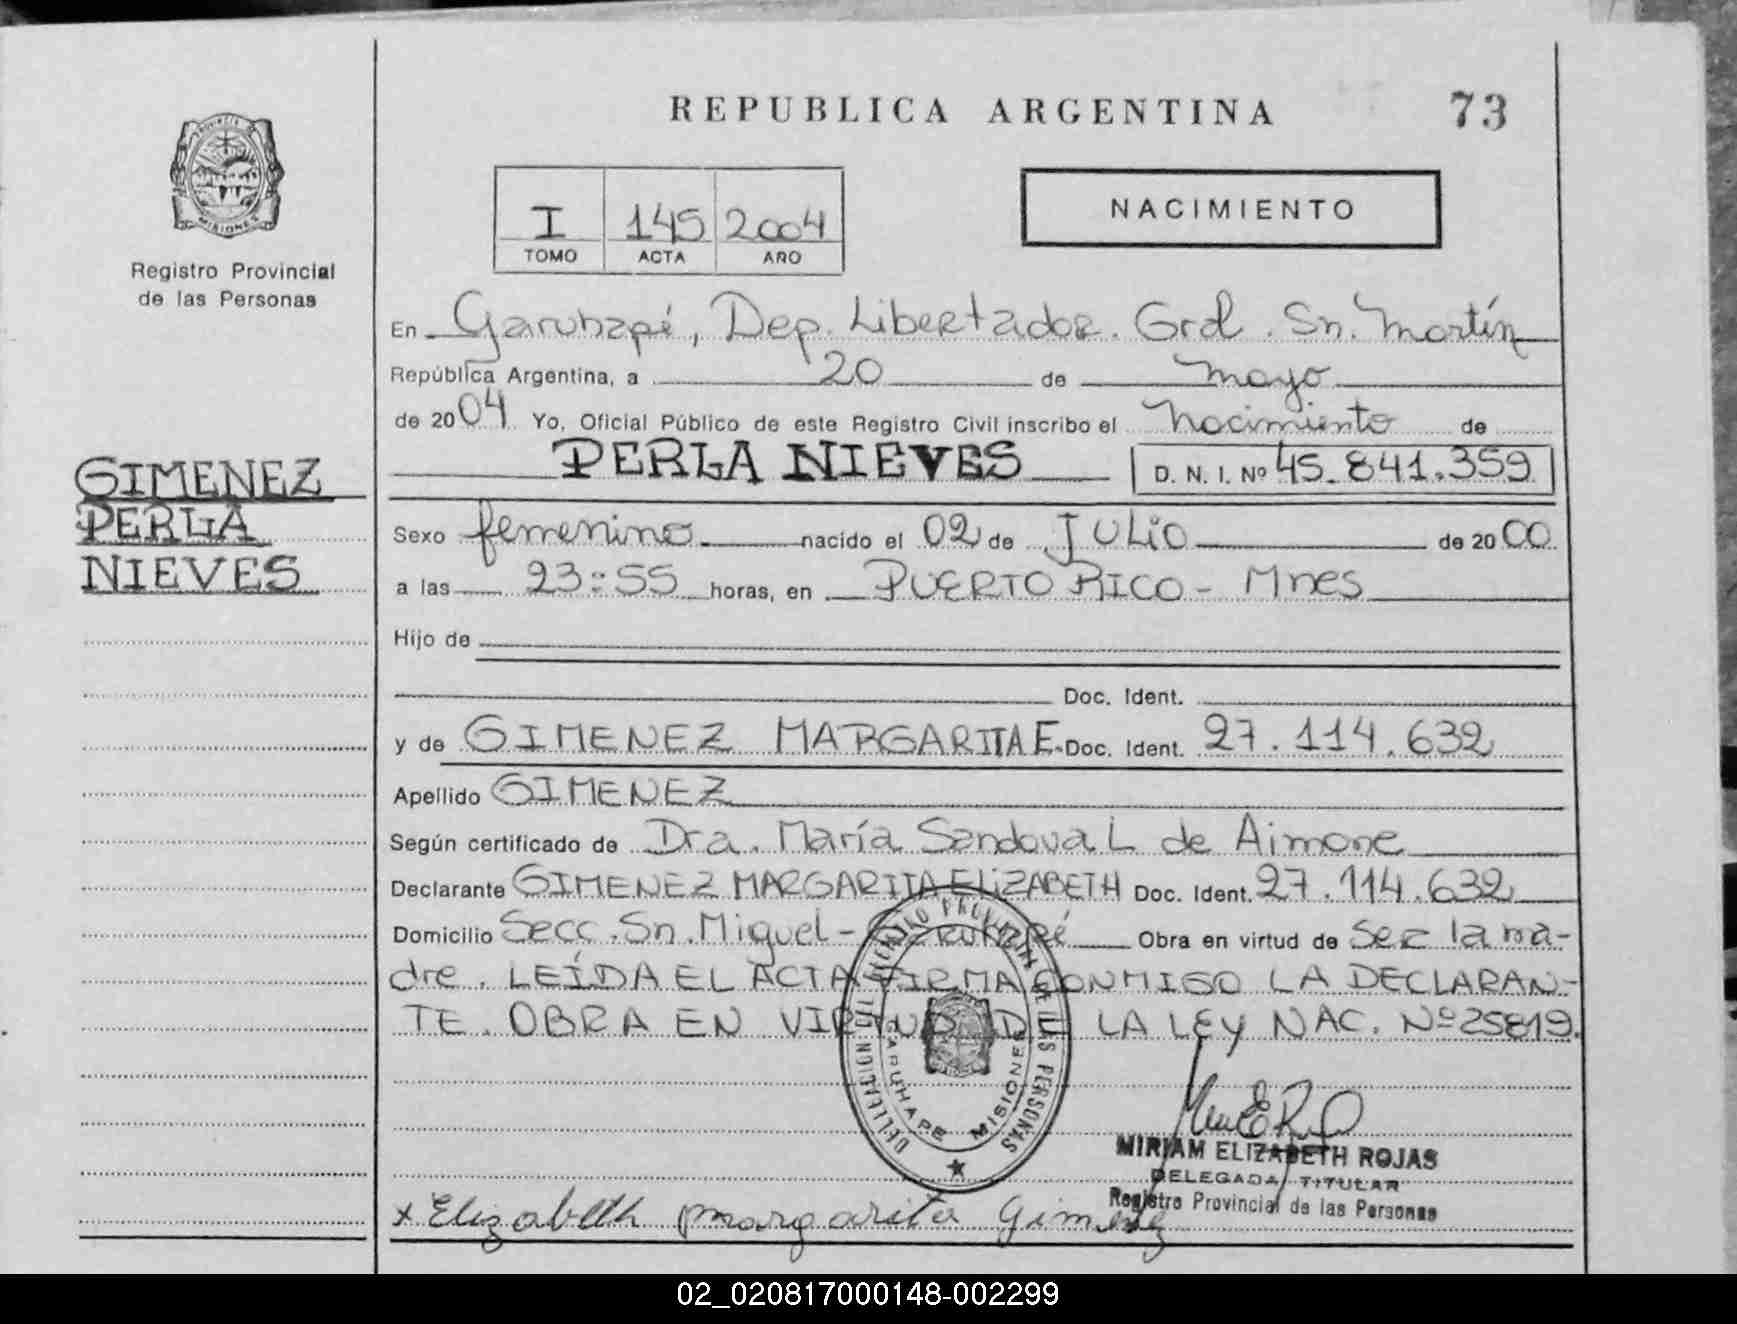 REPUBLICA ARGENTINA
73
PROVINCIA DE
MISIONES
Registro Provincial
de las Personas
I 145 2004
TOMO ACTA AÑO
NACIMIENTO
En Garuhapé, Dep. Libertador. Gral. Sn. Martín
República Argentina, a 20 de mayo
de 2004 Yo, Oficial Público de este Registro Civil inscribo el Nacimiento de
PERLA NIEVES D. N. I. Nº 45.841.359
GIMENEZ
PERLA
NIEVES
Sexo femenino nacido el 02 de JULIO de 2000
a las 23:55 horas, en PUERTO RICO - Mnes
Hijo de
Doc. Ident.
y de GIMENEZ MARGARITA E. Doc. Ident. 27.114.632
Apellido GIMENEZ
Según certificado de Dra. María Sandoval de Aimone
Declarante GIMENEZ MARGARITA ELIZABETH Doc. Ident. 27.114.632
Domicilio Secc. Sn. Miguel - Garuhapé Obra en virtud de Ser la ma-
dre. LEÍDA EL ACTA FIRMA CONMIGO LA DECLARAN-
TE. OBRA EN VIRTUD DE LA LEY NAC. Nº 25819.
DELEGACION DEL REGISTRO PROVINCIAL DE LAS PERSONAS
GARUHAPE MISIONES
MIRIAM ELIZABETH ROJAS
DELEGADA TITULAR
Registro Provincial de las Personas
x Elizabeth margarita Gimenez
02_020817000148-002299